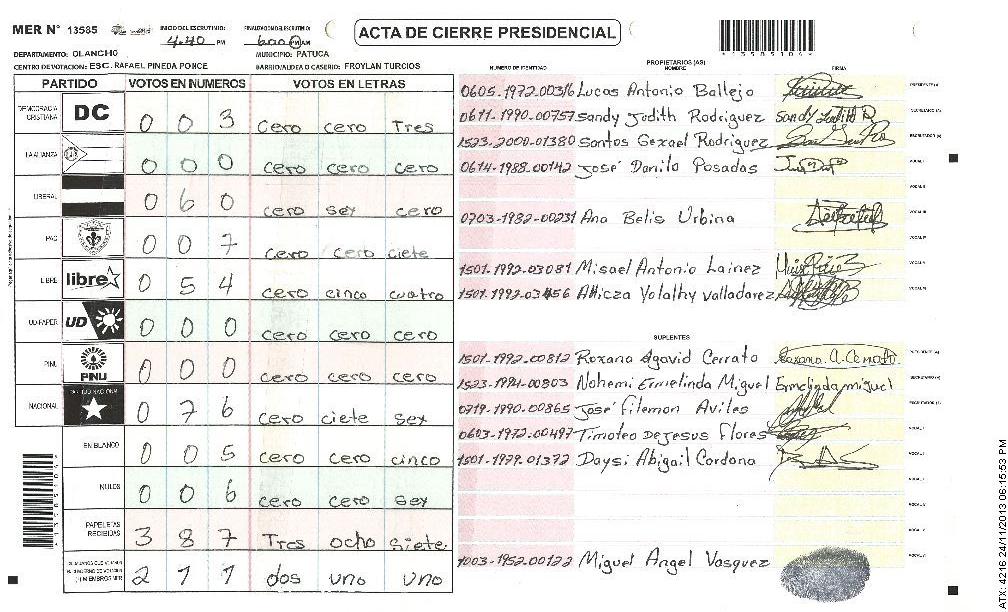 MER N° 13585
INICIO DEL ESCRUTINIO: 4:40 PM
FINALIZACION DEL ESCRUTINIO: 6:00 PM AM
ACTA DE CIERRE PRESIDENCIAL
*13585104*
DEPARTAMENTO: OLANCHO
MUNICIPIO: PATUCA
CENTRO DE VOTACION: ESC. RAFAEL PINEDA PONCE
BARRIO/ALDEA O CASERIO: FROYLAN TURCIOS
PARTIDO VOTOS EN NUMEROS VOTOS EN LETRAS
DEMOCRACIA CRISTIANA DC 0 0 3 cero cero Tres
LA ALIANZA 0 0 0 cero cero cero
LIBERAL 0 6 0 cero sey cero
PAC 0 0 7 cero cero ciete
LIBRE libre 0 5 4 cero cinco cuatro
UD-FAPER UD 0 0 0 cero cero cero
PINU PINU 0 0 0 cero cero cero
NACIONAL PARTIDO NACIONAL 0 7 6 cero ciete sey
EN BLANCO 0 0 5 cero cero cinco
NULOS 0 0 6 cero cero sey
PAPELETAS RECIBIDAS 3 8 7 Tres ocho siete
2 1 1 dos uno uno
PROPIETARIOS (AS)
NUMERO DE IDENTIDAD NOMBRE FIRMA
0605-1972-00316 Lucas Antonio Ballejo PRESIDENTE (A)
0611-1990-00757 Sandy Judith Rodriguez Sandy Judith R SECRETARIO (A)
1523-2000-01380 Santos Gexael Rodriguez ESCRUTADOR (A)
0614-1988-00142 José Danilo Posadas VOCAL I
VOCAL II
0703-1982-00231 Ana Belis Urbina VOCAL III
VOCAL IV
1501-1992-03081 Misael Antonio Lainez VOCAL V
VOCAL VI
SUPLENTES
1501-1992-00812 Roxana Agavid Cerrato Roxana. A. Cerrato. PRESIDENTE (A)
1523-1994-00803 Nohemi Ermelinda Miguel Ermelinda miguel SECRETARIO (A)
0219-1990-00865 José filemon Aviles ESCRUTADOR (A)
0603-1972-00497 Timoteo De Jesus Flores VOCAL I
1501-1979-01372 Daysi Abigail Cardona VOCAL II
1003-1952-00122 Miguel Angel Vasquez
ATX: 4216 24/11/2013 06:15:53 PM